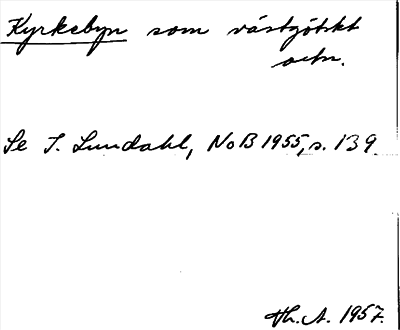 Kyrkebyn som västgötskt
ortn.
Se I. Lundahl, NoB 1955, s. 139.
Th. A. 1957.